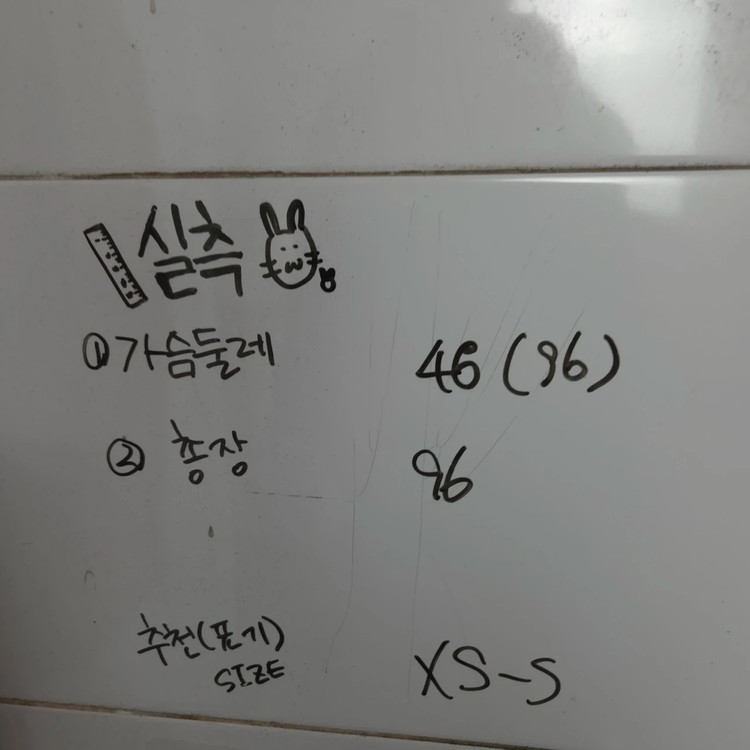 실측
① 가슴둘레 46 (96)
② 총장 96
추천(표기) XS-S
SIZE